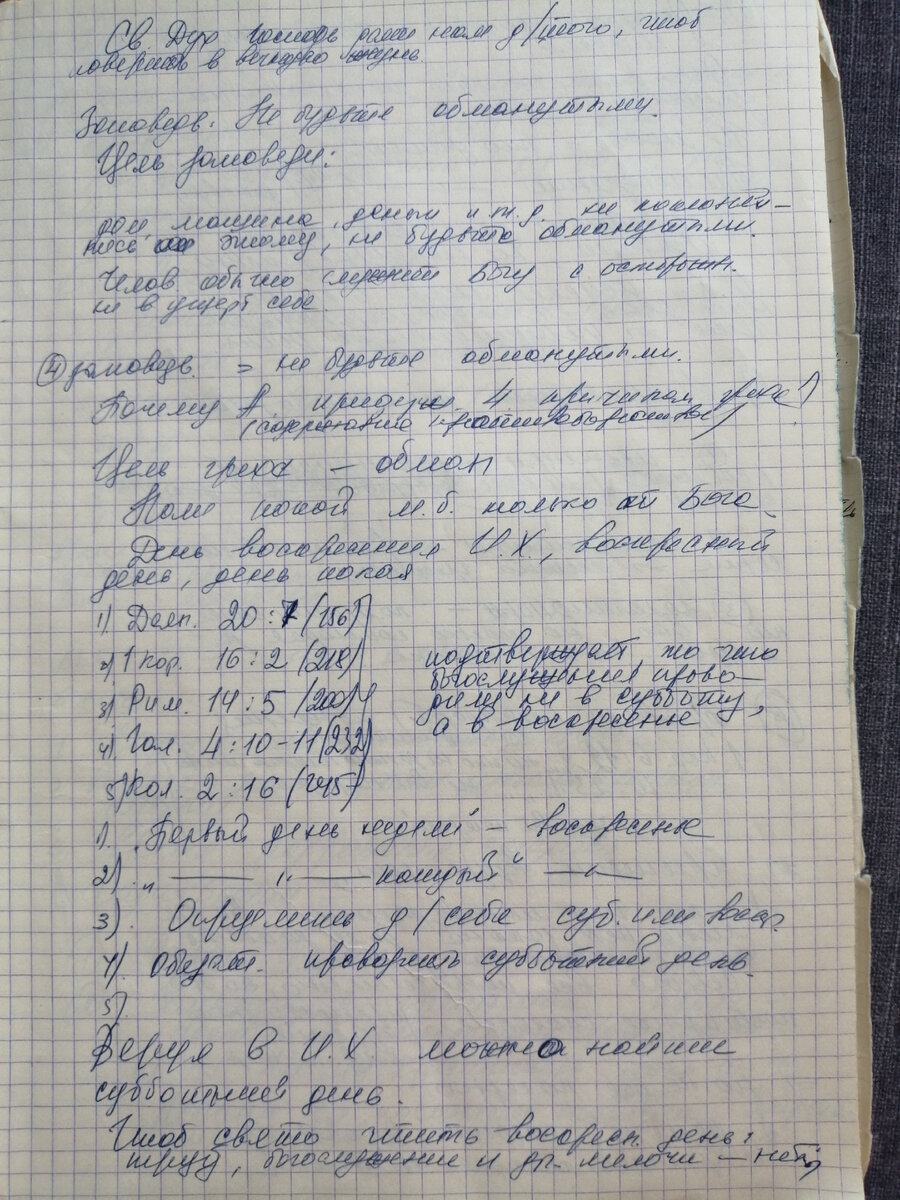 Св. Дух Господь дает нам д/того, чтоб
поверить в вечную жизнь.
Заповедь: Не будьте обманутыми.
Цель заповеди:
дом, машина, деньги и т.д. не поклоняй-
тесь этому, не будьте обманутыми.
Челов обычно служит Богу с осторожн.
не в ущерб себе.
④ заповедь. = не будьте обманутыми.
Почему 4 причинам греха)
(содержание
Цель греха – обман
покой м.б. только от Бога.
День воскресения И.Х., воскресный
день, день покоя
1). Деян. 20:7 (156)
2) 1 Кор. 16:2 (218)
3) Рим. 14:5 (200)
4). Гал. 4:10-11 (232)
5) Кол. 2:16 (245)
подтверждает то что
богослужения прово-
дили не в субботу,
а в воскресенье
1). "Первый день недели" – воскресенье
2). " —— " —— каждый" —"—
3). Определись д/себя суб. или воскр.
4). Обязат. проводить субботний день.
5)
Веруя в И.Х. можно найти
субботний день.
Чтоб свято чтить воскресн. день:
труд, богослужение и др. мелочи – нет,